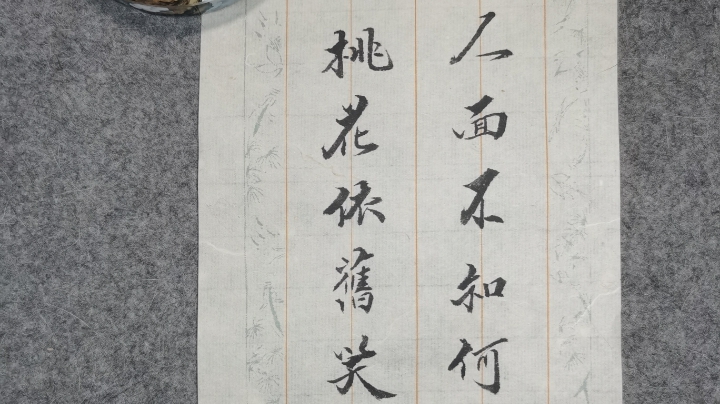 人面不知何
桃花依舊笑